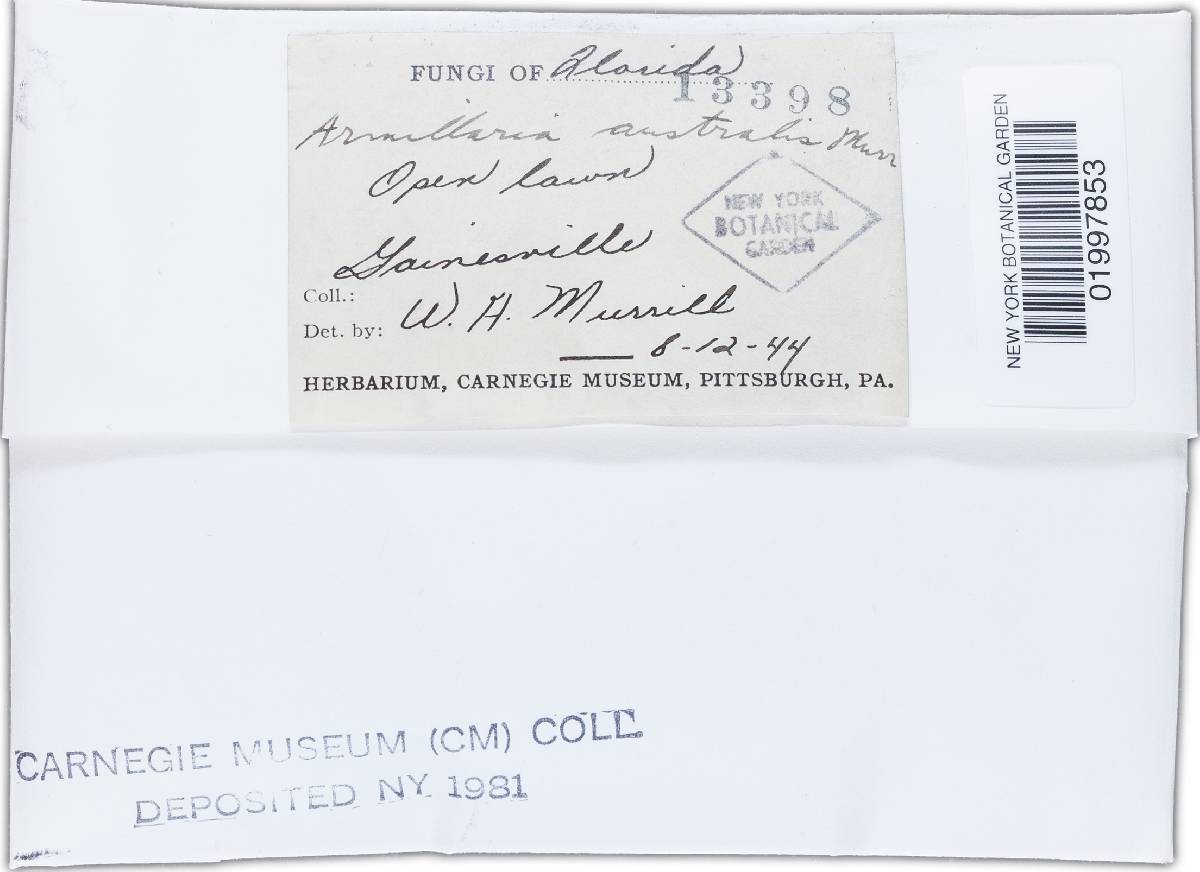 FUNGI OF Florida
13398
Armillaria australis Murr
Open lawn
NEW YORK
BOTANICAL
GARDEN
Gainesville
Coll.:
Det. by: W. A. Murrill
8-12-44
HERBARIUM, CARNEGIE MUSEUM, PITTSBURGH, PA.
NEW YORK BOTANICAL GARDEN
01997853
CARNEGIE MUSEUM (CM) COLL.
DEPOSITED NY. 1981